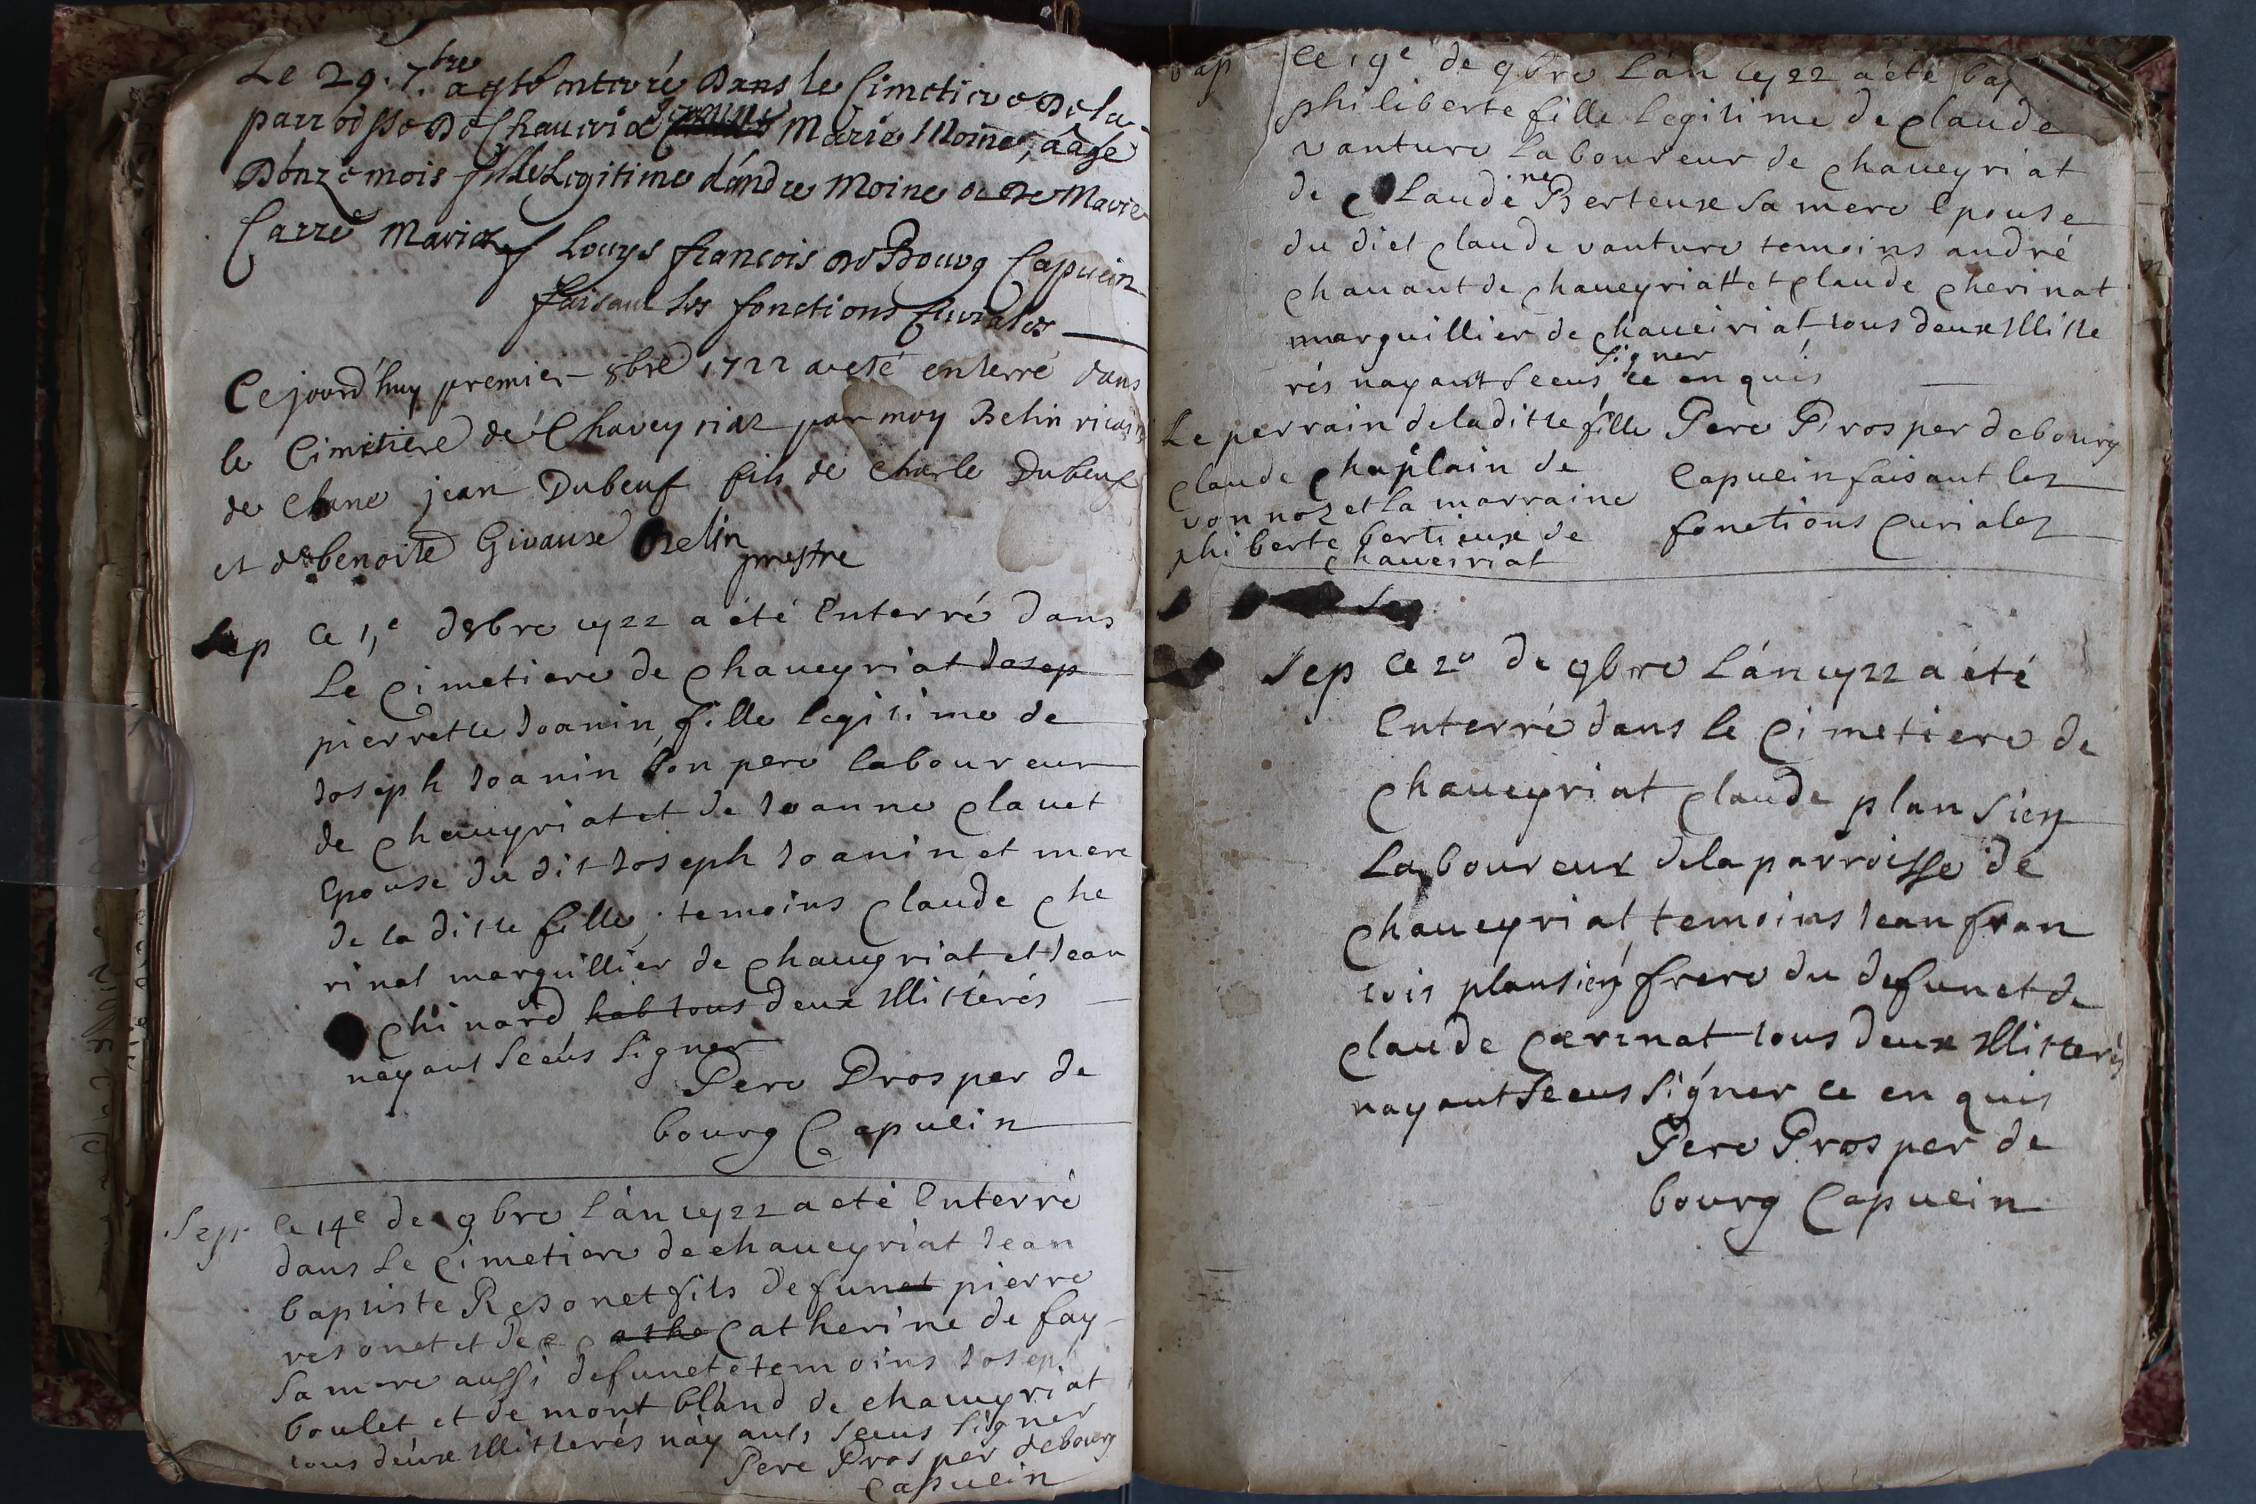 Le 29. 7.bre a esté enterré dans le Cimetiere de la
parroisse de Chaveria Marie Moine, aagé
d'onze mois fille Legitime d'André Moine et de Marie
Carré mariez Louys françois de Bourg Capucin
faisant les fonctions Curiales
Ce jourd'huy premier 8bre 1722 a esté enterré dans
le Cimetiere de Chaveyriaz par moy Belin vicaire
de jean Dubeuf fils de Charle Dubeuf
et de benoite Givaux Belin
prestre
Sep ce 1,e d8bre 1722 a été Enterré dans
Le Cimetiere de Chaueyriat Josep
pierrette Joanin, fille legitime de
Joseph Joanin son pere laboureur
de Chaueyriat et de Joanne Clauet
Epouse du dit Joseph Joanin et mere
de la ditte fille, temoins Claude Che
rinat marguillier de Chaueyriat et Jean
Chinard hab tous deux Illitterés
nayant sceus signer
Pere Prosper de
bourg Capucin
Sep. ce 14e de 9bre L'an 1722 a eté Enterré
dans Le Cimetiere de chaueyriat Jean
baptiste Resonet fils defunct pierre
resonet et de Catherine de fay
sa mere aussi defuncte temoins Josep
boulet et de mont bland de chaueyriat
tous deux Illitterés nayant sceus signer
Pere Prosper de bourg
Capucin
bap ce 19e de 9bre L'an 1722 a été bap
philiberte fille Legitime de Claude
vanture Laboureur de Chaueyriat
de Claudine Berteux sa mere Epouse
du dict Claude vanture temoins andré
Chanaut de Chaueyriatt et Claude Cherinat
marguillier de Chaueiriat tous deux Illitte
signer
rés nayant sceus ce enquis
Le perrain de laditte fille
Claude Chaplain de
vonnoz et la marraine
phiberte bertieux de
Chaueiriat
Pere Prosper de bourg
Capucin faisant les
fonctions Curiales
Sep
Sep ce 20 de 9bre L'an 1722 a été
Enterré dans le Cimetiere de
Chaueyriat Claude plansien
Laboureur de la parroisse de
Chaueyriat, temoins Jean fran
cois plansien frere du defunct de
Claude Cerinat tous deux Illitterés
nayant sceus signer ce enquis
Pere Prosper de
bourg Capucin